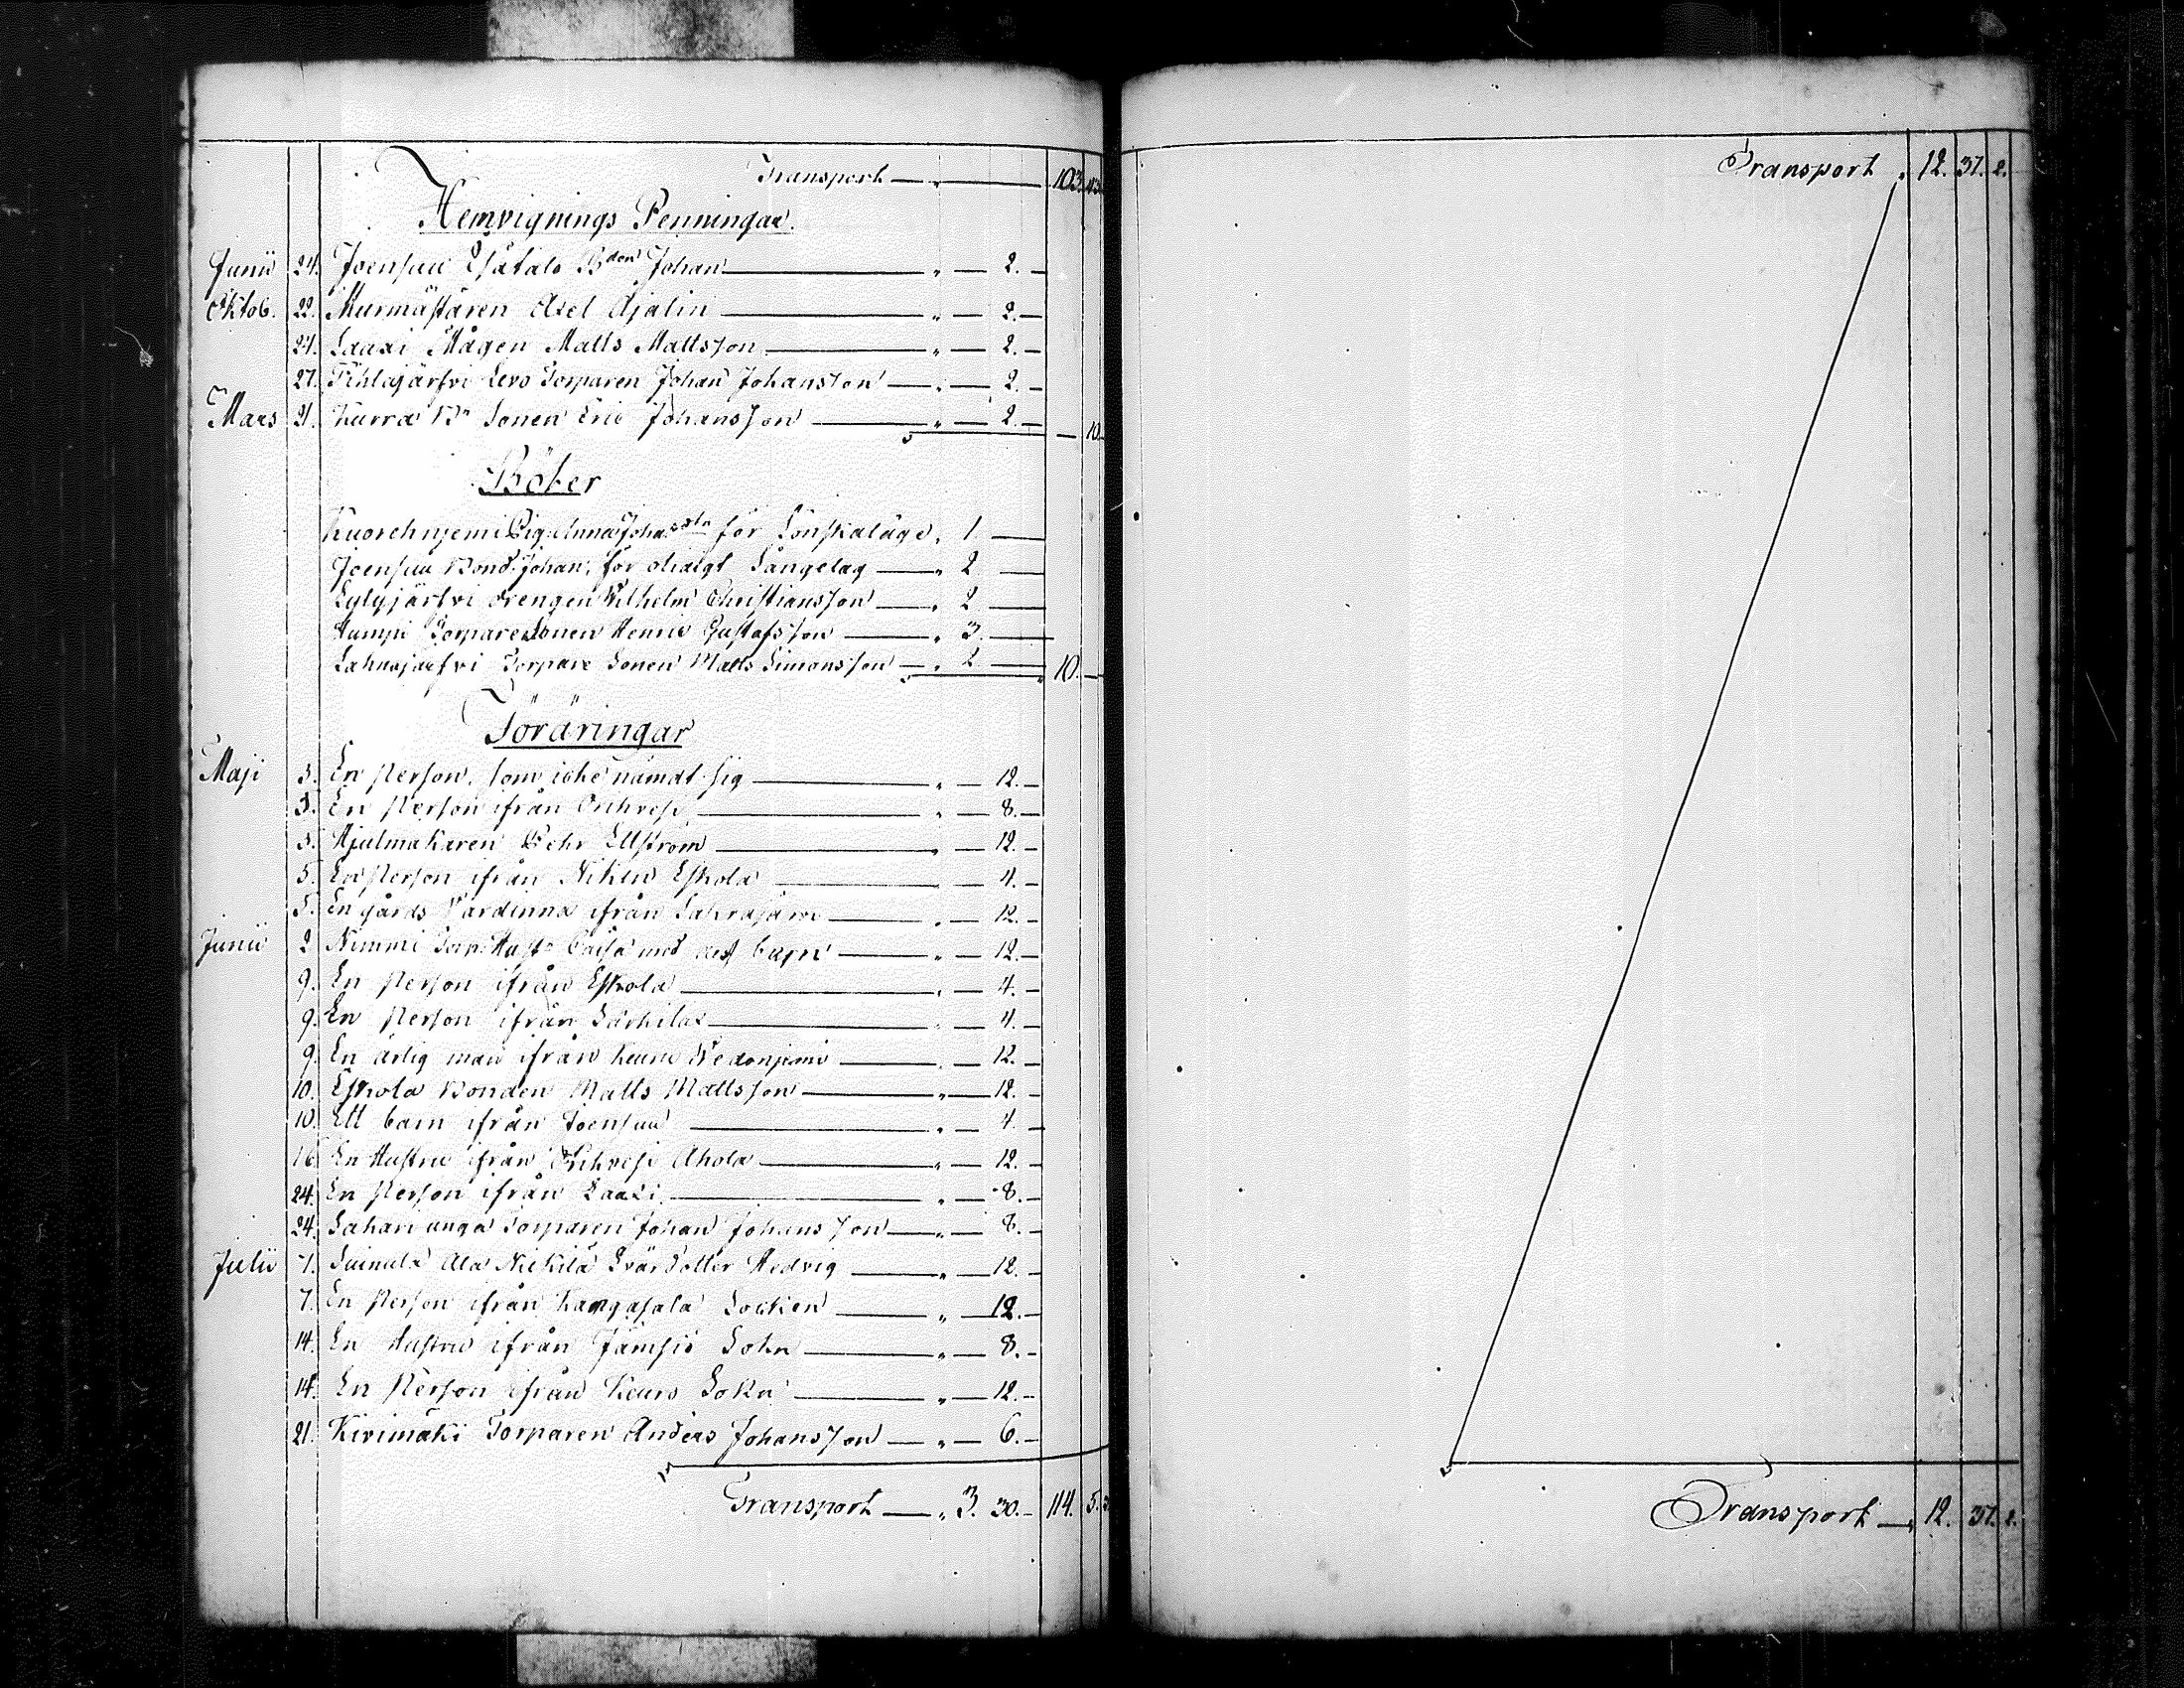 Transport — " — 103. 43.
Hemvignings Penningar.
Junii 24. Joensuu Ylätalo Bden Johan — " — 2. —
Oktob. 22. Murmästaren Axel Ajalin — " — 2. —
24. Laaxi Mågen Matts Mattsson — " — 2. —
27. Pihlajärfvi Levo Torparen Johan Johansson — " — 2. —
Mars 21. Kurra Bn Sonen Eric Johansson — " — 2. — — 10.
Böter
Kuorehnjemi Pig. Anna Johansdtr för Lönskaläge " 1 —
Joensuu Bond. Johan, för olialgt Sängelag — " 2 —
Lylyjärfvi drengen Wilhelm Christiansson — " 2 —
Humpi Torpare Sonen Henric Gustafsson — " 3. —
Lahnajärfvi Torpare Sonen Matts Simonsson — " 2 — 10. —
Föräringar
Maji 3. En Person, som icke nämdt sig — " — 12. —
3. En Person ifrån Orihvesi — " — 8. —
3. Hjulmakaren Pehr Ellström — " — 12. —
5. En Person ifrån Eskola — " — 4. —
5. En gårds Värdinna ifrån — " — 12. —
Junii 2 Niemmi Torp. Hust. Caisa med dess barn — " — 12. —
9. En Person ifrån Eskola — " — 4. —
9. En Person ifrån Särkilax — " — 4. —
9. En ärlig man ifrån Keuru — " — 12. —
10. Eskola Bonden Matts Mattsson — " — 12. —
10. Ett barn ifrån Joensuu — " — 4. —
16 En Hustru ifrån Orihvesi Ahola — " — 12. —
24. En Person ifrån Laaxi — " — 8. —
24. Torparen Johan Johansson — " — 8. —
Julii 7. Suinula Ala Nickilä Svärdotter Hedvig — " — 12. —
7. En Person ifrån Kangasala Socken — " — 12. —
14. En Hustru ifrån Jämsiö Sokn — " — 8. —
14. En Person ifrån Keuro Sokn — " — 12. —
21. Kivimäki Torparen Anders Johansson — " — 6. —
Transport — " 3. 30. — 114. 5.
Transport " 12. 37. 2.
Transport — " 12. 37. 2.